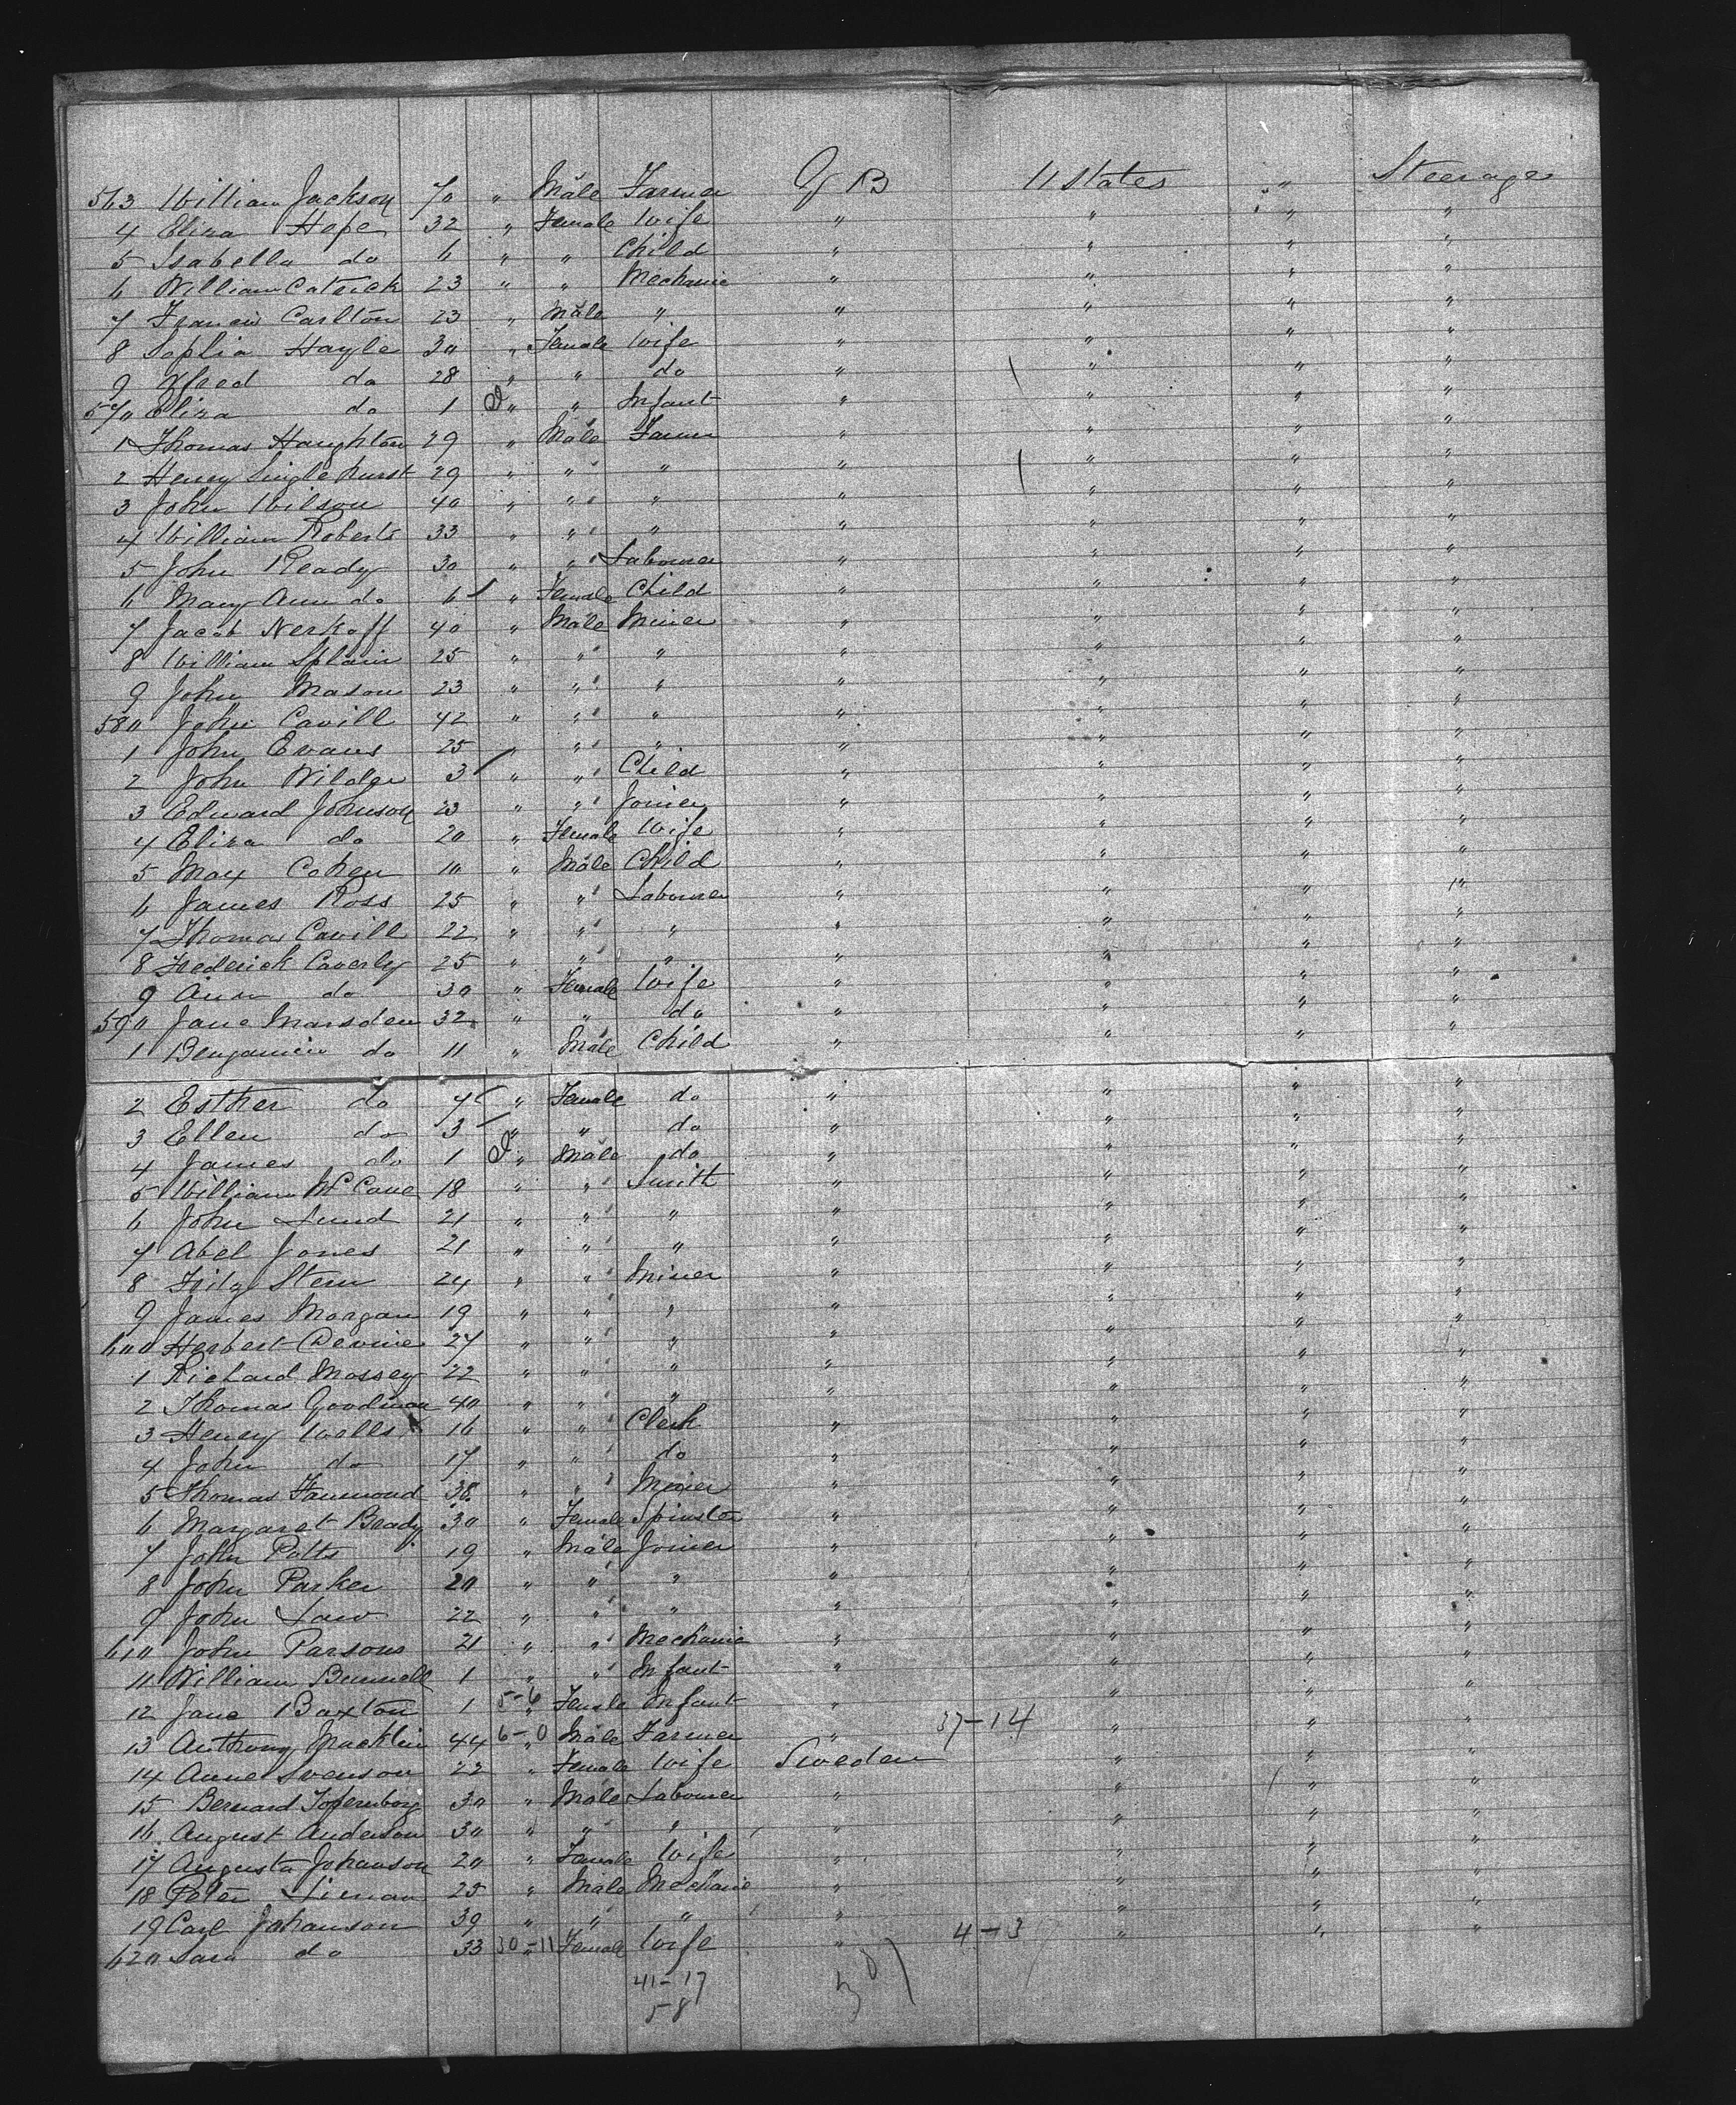 563 William Jackson 70 " Male Farmer G B U States " Steerage
4 Eliza Hope 32 " Female Wife " " " "
5 Isabella do 6 " " Child " " " "
6 William Catrick 23 " " Mechanic " " " "
7 Francis Carlton 23 " Male " " " " "
8 Sophia Hayle 30 " Female Wife " " " "
9 do 28 " " do " " " "
570 Eliza do 1 " " Infant " " " "
1 Thomas Haughton 29 " Male Farmer " " " "
2 Henry Singlehurst 29 " " " " " " "
3 John Wilson 40 " " " " " " "
4 William Roberts 33 " " " " " " "
5 John Ready 30 " " Labourer " " " "
6 Mary Ann do 6 " Female Child " " " "
7 Jacob Nerkoff 40 " Male Miner " " " "
8 William Splain 25 " " " " " " "
9 John Mason 23 " " " " " " "
580 John Cavill 42 " " " " " " "
1 John Evans 25 " " " " " " "
2 John Wilder 3 " " Child " " " "
3 Edward Johnson 23 " " Joiner " " " "
4 Eliza do 20 " Female Wife " " " "
5 Max Cohen 10 " Male Child " " " "
6 James Ross 25 " " Labourer " " " "
7 Thomas Cavill 22 " " " " " " "
8 Frederick Caverly 25 " " " " " " "
9 Ann do 30 " Female Wife " " " "
590 Jane Marsden 32 " " do " " " "
1 Benjamin do 11 " Male Child " " " "
2 Esther do 7 " Female do " " " "
3 Ellen do 3 " " do " " " "
4 James do 1 " Male do " " " "
5 William McCane 18 " " Smith " " " "
6 John Lund 21 " " " " " " "
7 Abel Jones 21 " " " " " " "
8 Fritz Stern 24 " " Miner " " " "
9 James Morgan 19 " " " " " " "
600 Herbert Devine 27 " " " " " " "
1 Richard Mossey 22 " " " " " " "
2 Thomas Goodman 40 " " " " " " "
3 Henry Wells 16 " " Clerk " " " "
4 John do 17 " " do " " " "
5 Thomas Hammond 38 " " Miner " " " "
6 Margaret Brady 30 " Female Spinster " " " "
7 John Potts 19 " Male Joiner " " " "
8 John Parker 20 " " " " " " "
9 John Law 22 " " " " " " "
610 John Parsons 21 " " Mechanic " " " "
11 William Bunnell 1 " " Infant " " " "
12 Jane Baxton 1 5-6 " Female Infant " " " "
13 Anthony Macklin 44 6-0 " Male Farmer " 37-14 " " "
14 Anne Svenson 22 " Female Wife Sweden " " "
15 Bernard 30 " Male Labourer " " " "
16 August Anderson 30 " " " " " " "
17 Augusta Johanson 20 " Female Wife " " " "
18 Peter 25 " Male Mechanic " " " "
19 Carl Johanson 39 " " " " " " "
620 Sara do 33 30-11 " Female Wife " 4-3 " " "
41-17
58